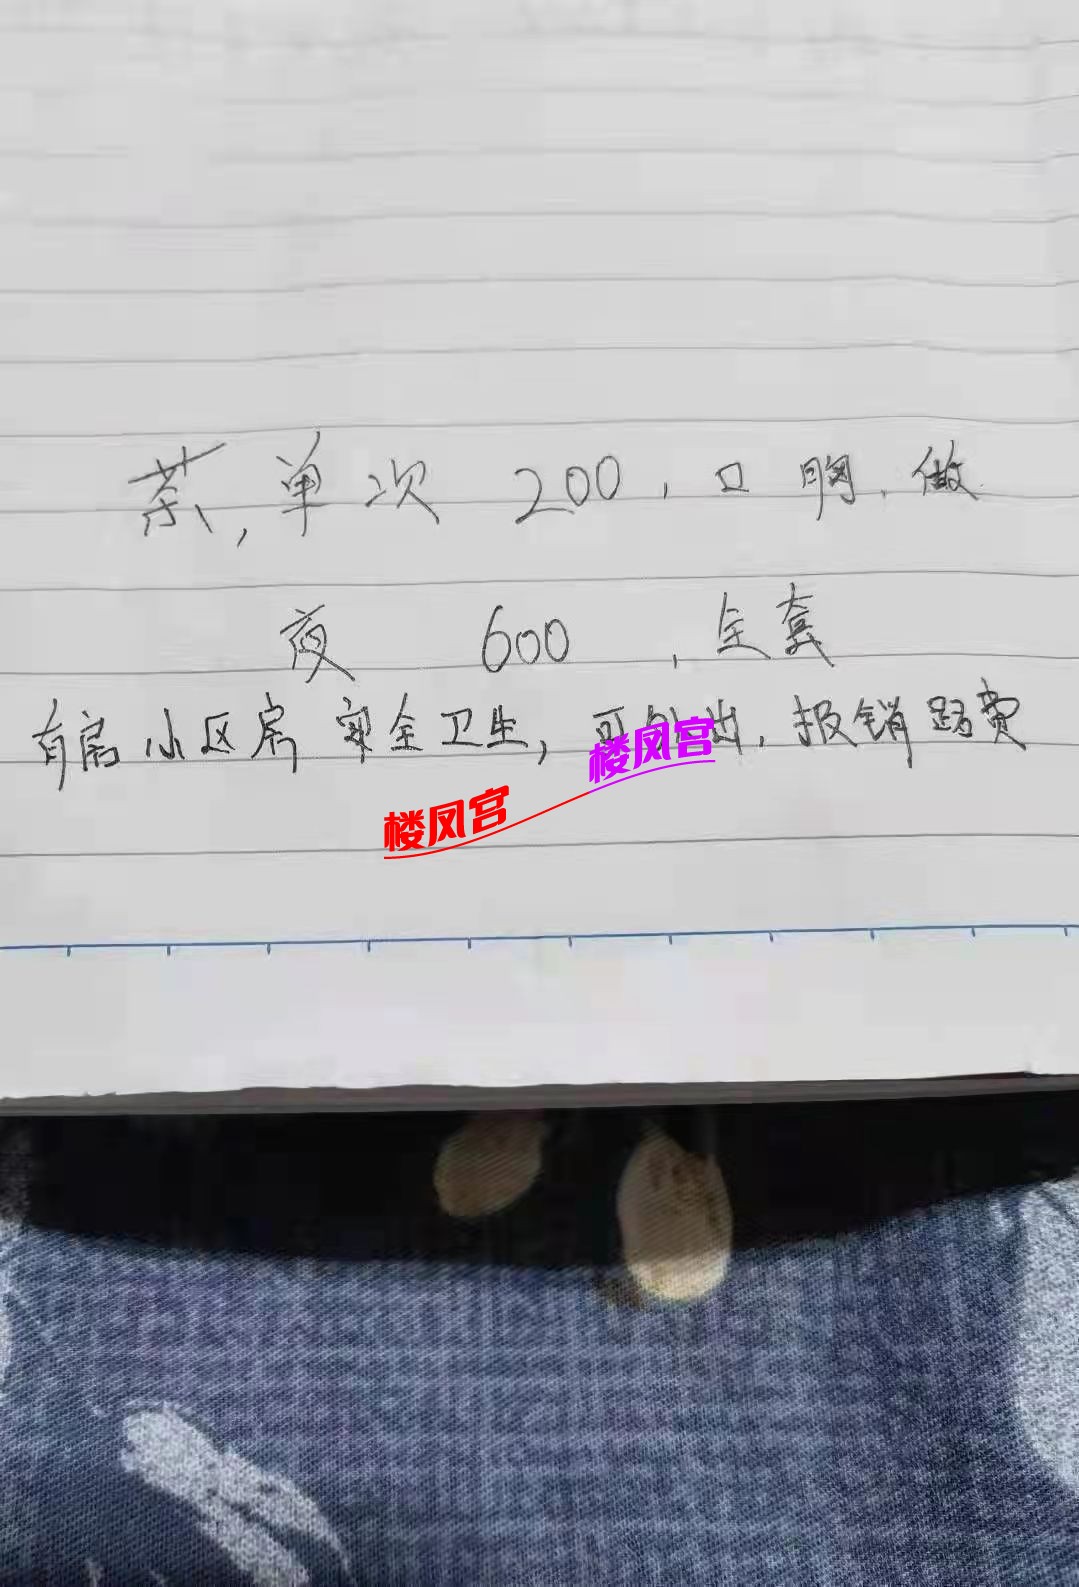 茶,单次 200,口 胸,做
夜 600,全套
有店小区房 安全卫生,可外出,报销路费
楼凤宫
楼凤宫